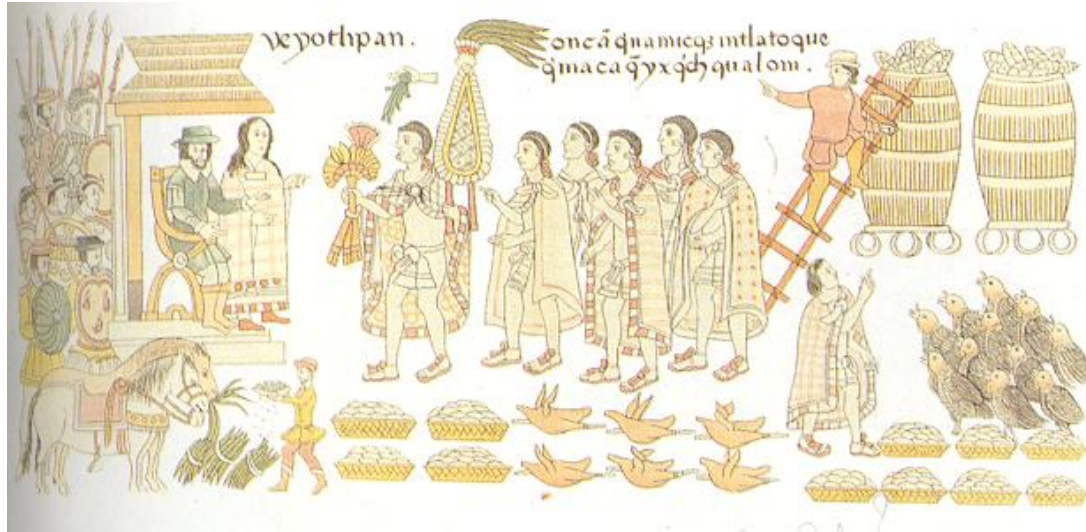 veyotlipan.
oncã q̃namicq3 intlatoque
q̃maca q̃yxq̃ch qualoni.